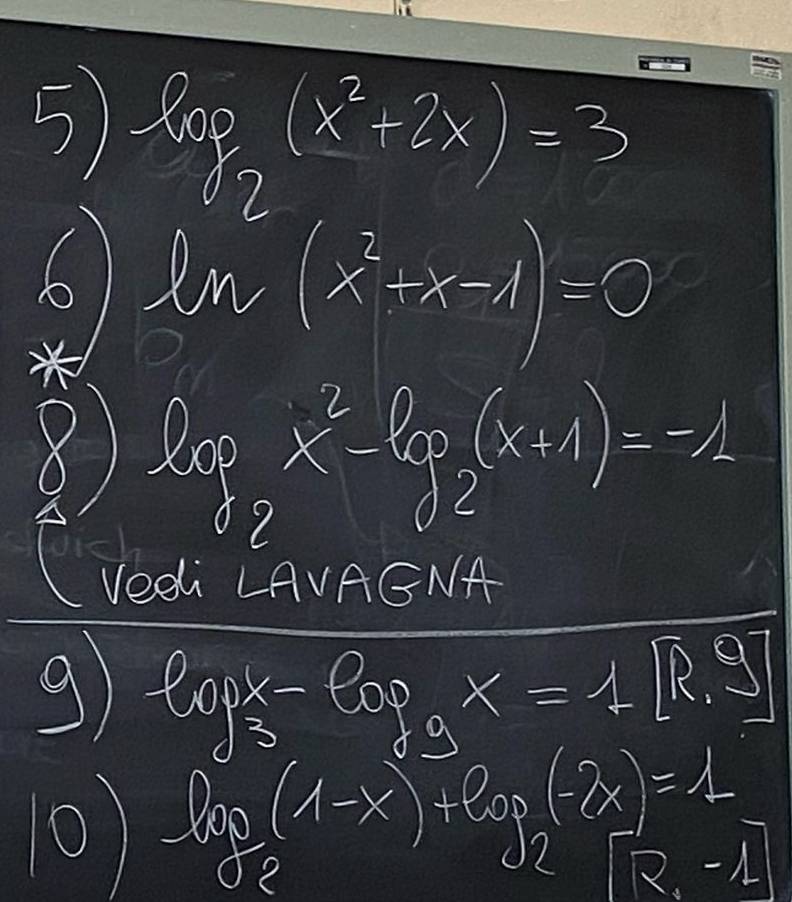 5) log₂ (x²+2x) = 3
6) ln (x²+x-1) = 0
*
8) log₂ x² - log₂ (x+1) = -1
vedi LAVAGNA
9) log₃x - log₉ x = 1 [R. 9]
10) log₂ (1-x) + log₂ (-2x) = 1
[R. -1]